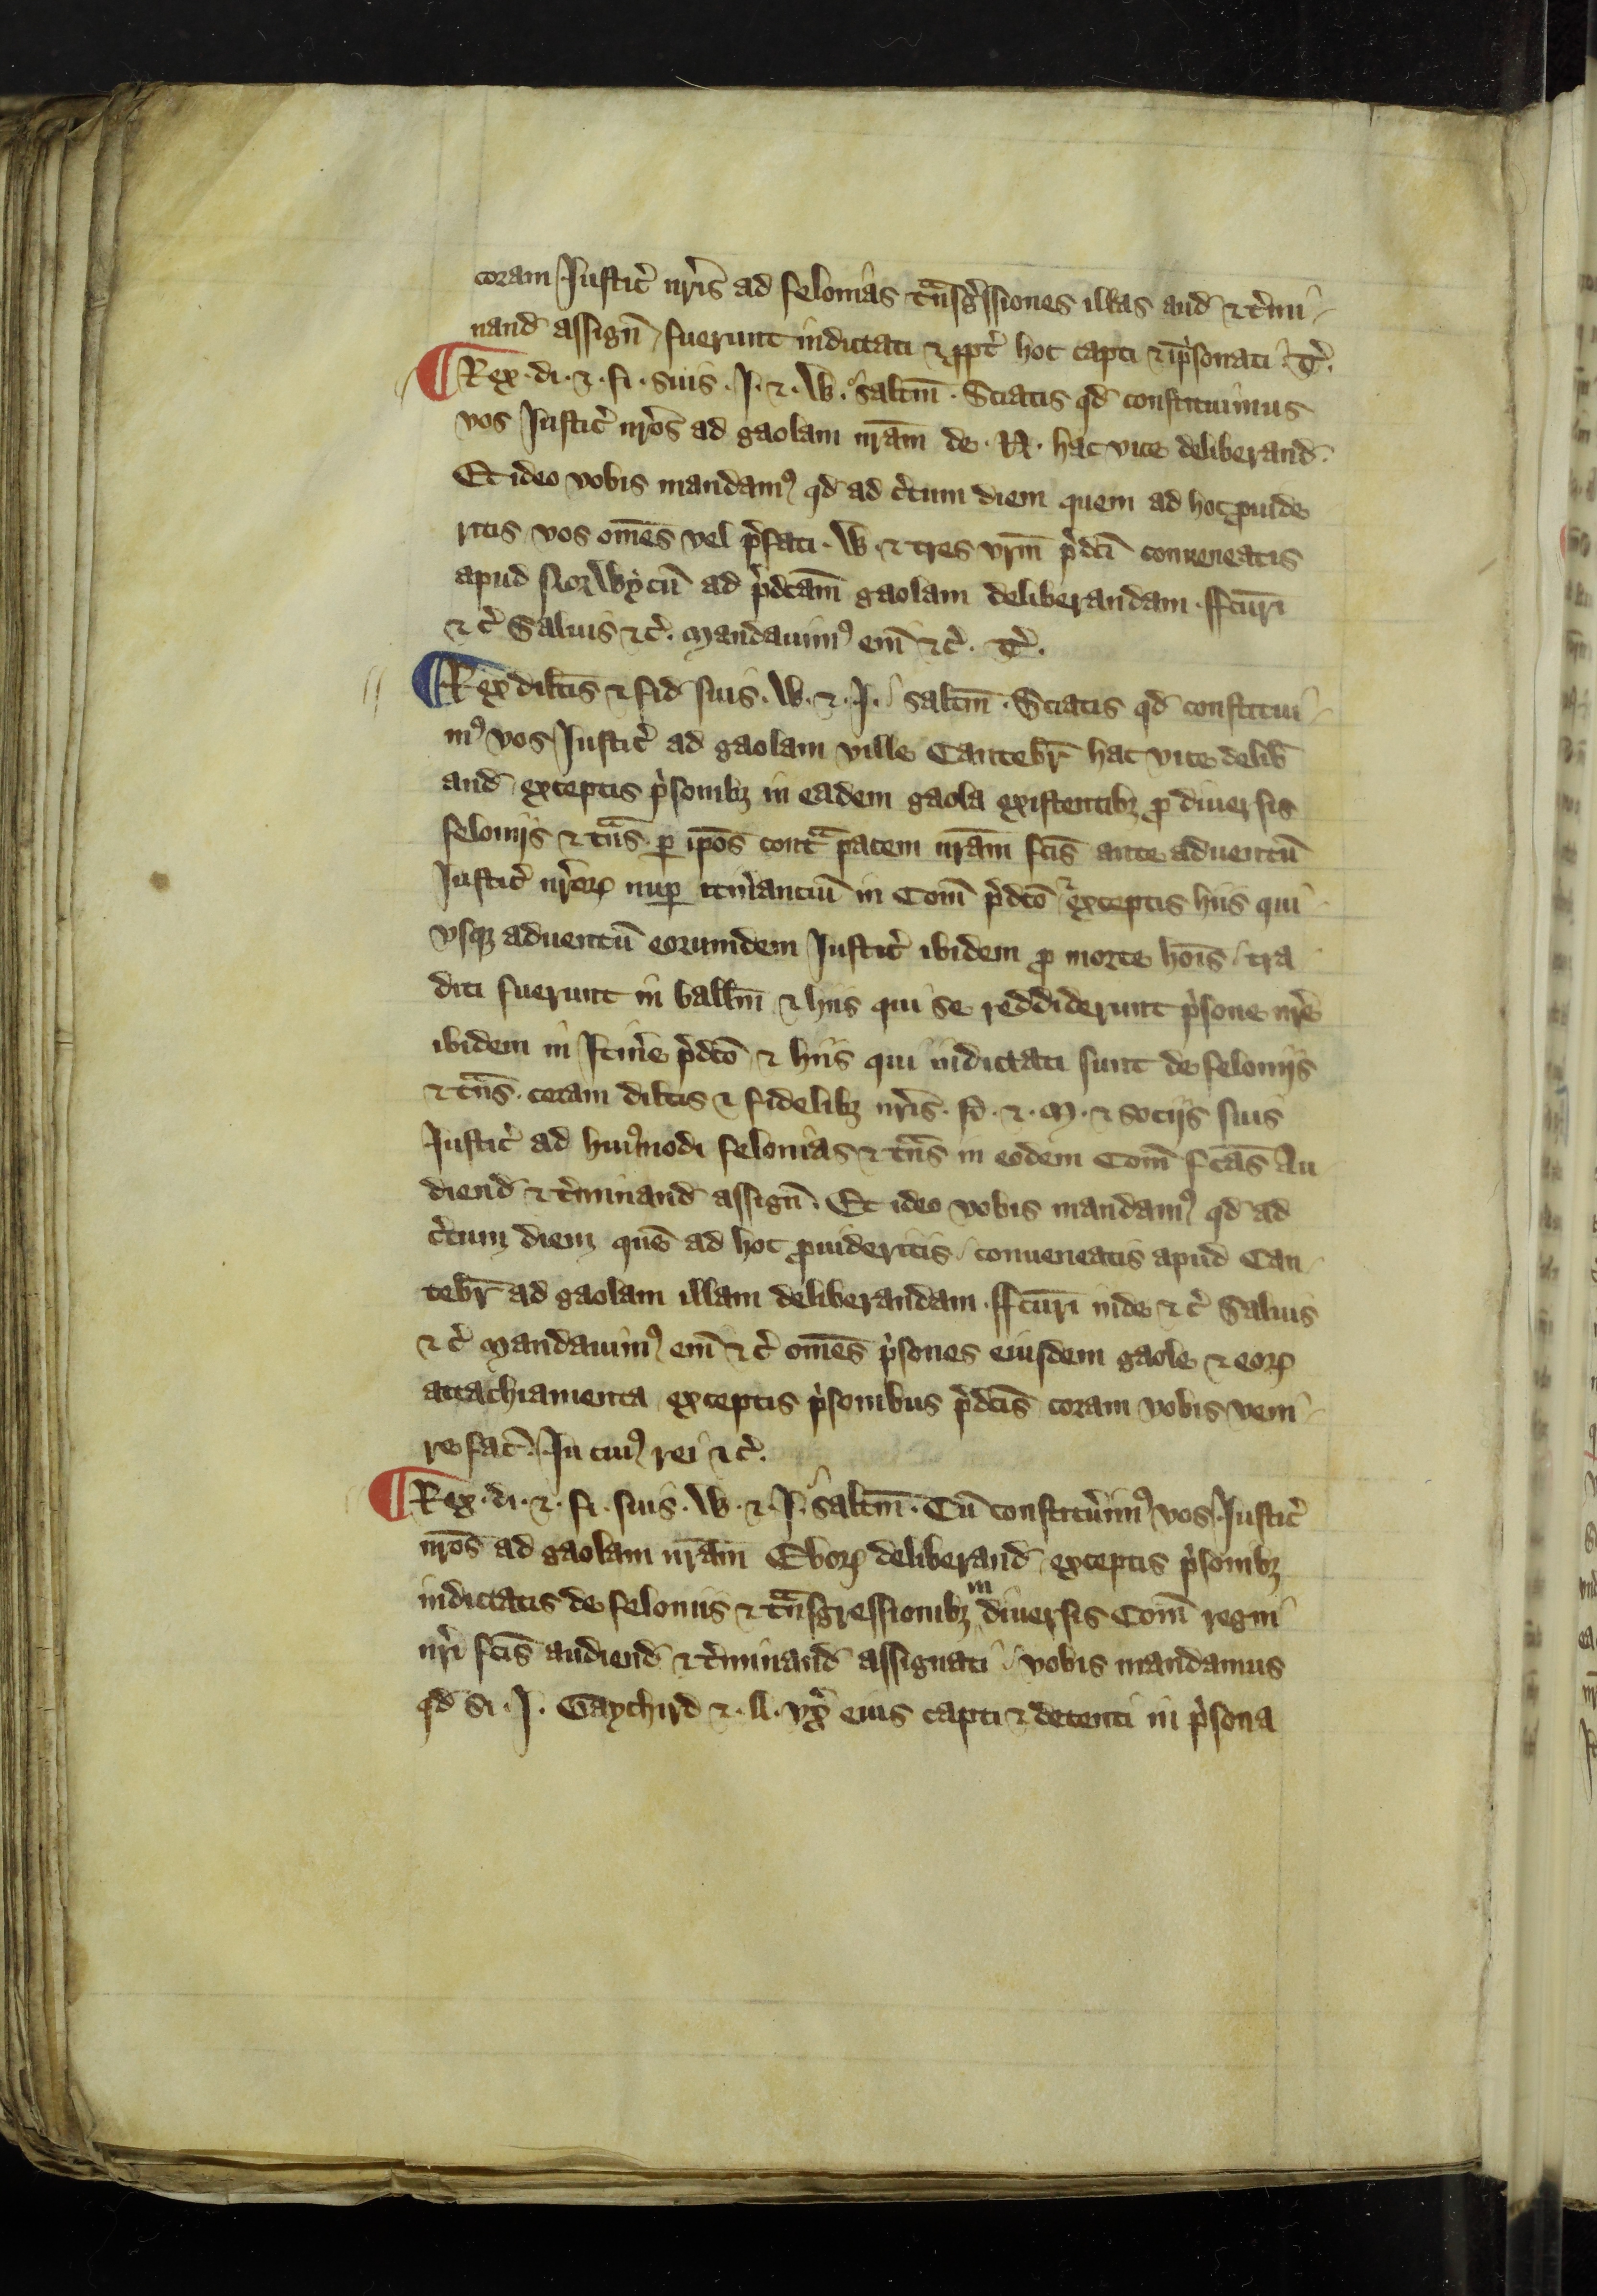 coram Justic̉ nr̄is ad felonias t͛nsg̉ssiones illas aud̄ ⁊ t̉mi
nand̄ assign̄ fuerunt indictati ⁊ ꝓpt̉ hoc capti ⁊ īp̉sonati. T̉.
¶ Rex . di . ⁊ . fi . suis . J . ⁊ . W . salt̄m . Sciatis qd̄ constituimus
vos Justic̉ nr̄os ad gaolam nr̄am de . N . hac vice deliberand̄.
Et ideo vobis mandamꝰ qd̄ ad c̉tum diem quem ad hoc ꝓuide
ritis vos om̄es vel p̉fati . W . ⁊ tres vr̄m p̉dc̄i conueneatis
apud Norwycū ad p̉dc̄am gaolam deliberandam . ffc̄uri
⁊ c̉ Saluis ⁊ c̉. Mandauimꝰ em̄ ⁊ c̉. T̉.
¶ Rex dilc̄is ⁊ fid̄ suis . W . ⁊ . J . salt̄m . Sciatis qd̄ constitui
mꝰ vos Justic̉ ad gaolam ville Cantebr̄ hac vice delib̄
and̄ exceptis p̉sonibꝫ in eadem gaola existentibꝫ ꝓ diuersis
felonijs ⁊ t͛ns̄ ꝑ ip̄os cont͛ pacem nr̄am fc̄is ante aduentū
Justic̉ nr̄oꝝ nuꝑ itin̉anciū in Com̄ p̉dc̄o exceptis hiis qui
vsqꝫ aduentū eorumdem Justic̉ ibidem ꝓ morte hōis tra
diti fuerunt in ball̄m ⁊ hiis qui se reddiderunt p̉sone nr̄e
ibidem in Itin̉e p̉dc̄o ⁊ hiis qui indictati sunt de felonijs
⁊ t͛ns̄ . coram dilc̄is ⁊ fidelibꝫ nr̄is . ⁊ . M . ⁊ socijs suis
Justic̉ ad huiꝰmodi felonias ⁊ t͛ns̄ in eodem Com̄ fc̄as Au
diend̄ ⁊ t̉minand̄ assign̄. Et ideo vobis mandamꝰ qd̄ ad
c̉tum diem quē ad hoc ꝓuideritis conueneatis apud Can
tebr̄ ad gaolam illam deliberandam . ffc̄uri inde ⁊ c̉ Saluis
⁊ c̉ Mandauimꝰ em̄ ⁊ c̉ om̄es p̉sones eiusdem gaole ⁊ eoꝝ
attachiamenta exceptis p̉sonibus p̉dc̄is coram vobis veni
re fac̄. In cuiꝰ rei ⁊ c̉.
¶ Rex . di . ⁊ . fi . suis . W . ⁊ . J . salt̄m . Cū constitủimꝰ vos Justic̉
nr̄os ad gaolam nr̄am Eboꝝ deliberand̄ exceptis p̉sonibꝫ
indictatis de feloniis ⁊ t͛nsgressionibꝫ in diuersis Com̄ regni
nr̄i fc̄is audiend̄ ⁊ t̉minand̄ assignati vobis mandamus
qd̄ si . J . Gaythird ⁊ . A . vx̉ eius capti ⁊ detenti in p̉sona